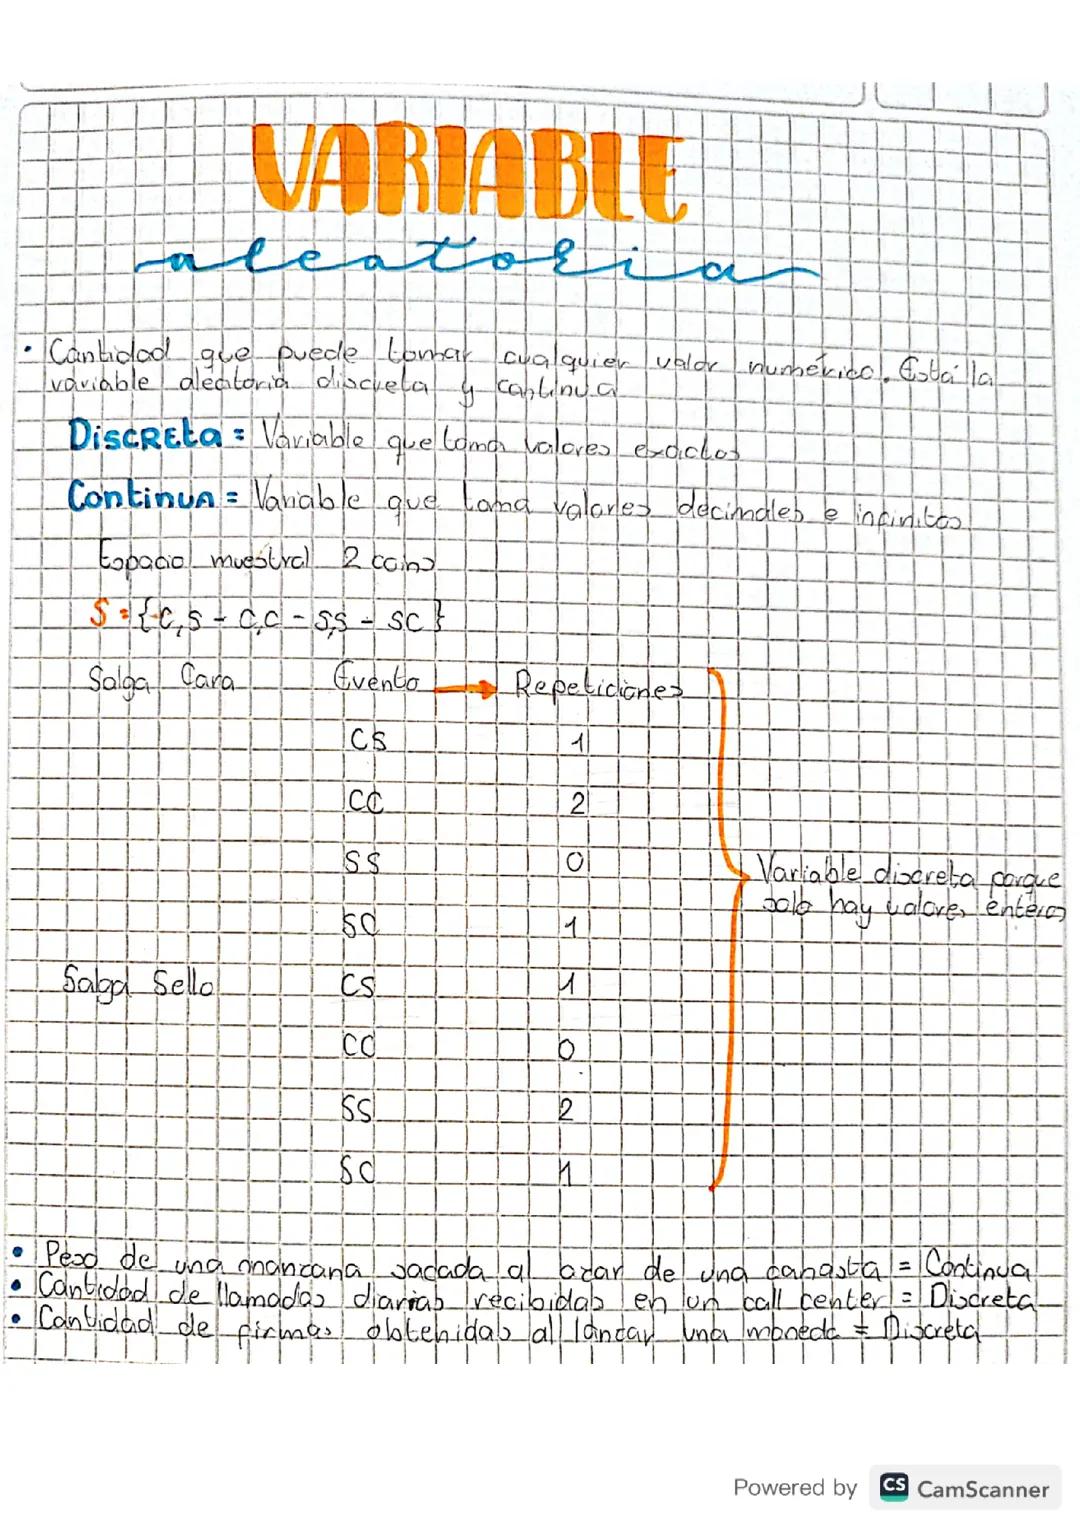 VARIABLE
aleatoria
• Cantidad que puede tomar cualquier valor numérico. Está la
variable aleatoria discreta y continua
DISCRETA = Variable que toma valores exactos
Continua = Variable que toma valores decimales e infinitos
Espacio muestral 2 caras
S = {C,S - C,C - S,S - SC}
Salga Cara Evento → Repeticiones
CS 1
CC 2
SS 0
Variable discreta porque
solo hay valores enteros
SC 1
Salga Sello CS 1
CC 0
SS 2
SC 1
• Peso de una manzana sacada al azar de una canasta = Continua
• Cantidad de llamadas diarias recibidas en un call center = Discreta
• Cantidad de firmas obtenidas al lanzar una moneda = Discreta
Powered by CS CamScanner